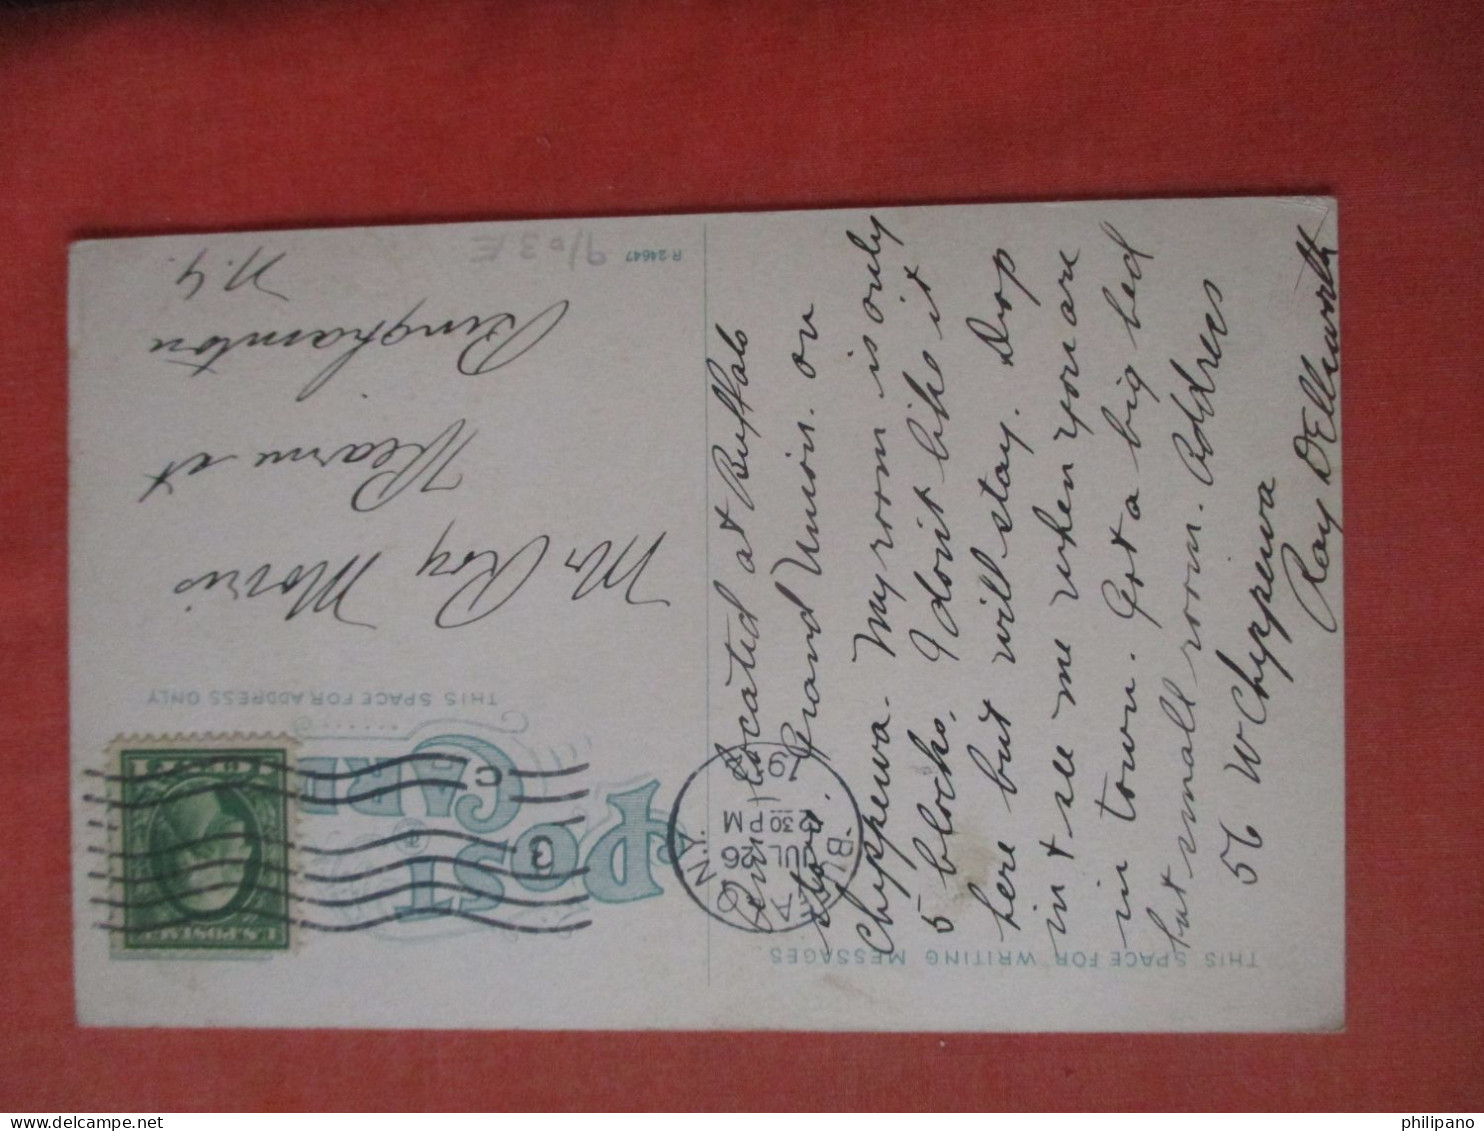 POST CARD
THIS SPACE FOR WRITING MESSAGES
THIS SPACE FOR ADDRESS ONLY
JUL 26
30 PM
19
N.Y.
U.S. POSTAGE
Am located at Buffalo
sta. Grand Union. on
Chippewa. My room is only
5 blocks. I don't like it
here but will stay. Drop
in & see me when you are
in town. Got a big bed
but small room. Address
56 W Chippewa
Ray DEllworth
Mr Roy Morris
at
Binghamton
N.Y.
R 24647
9/03E
philipano